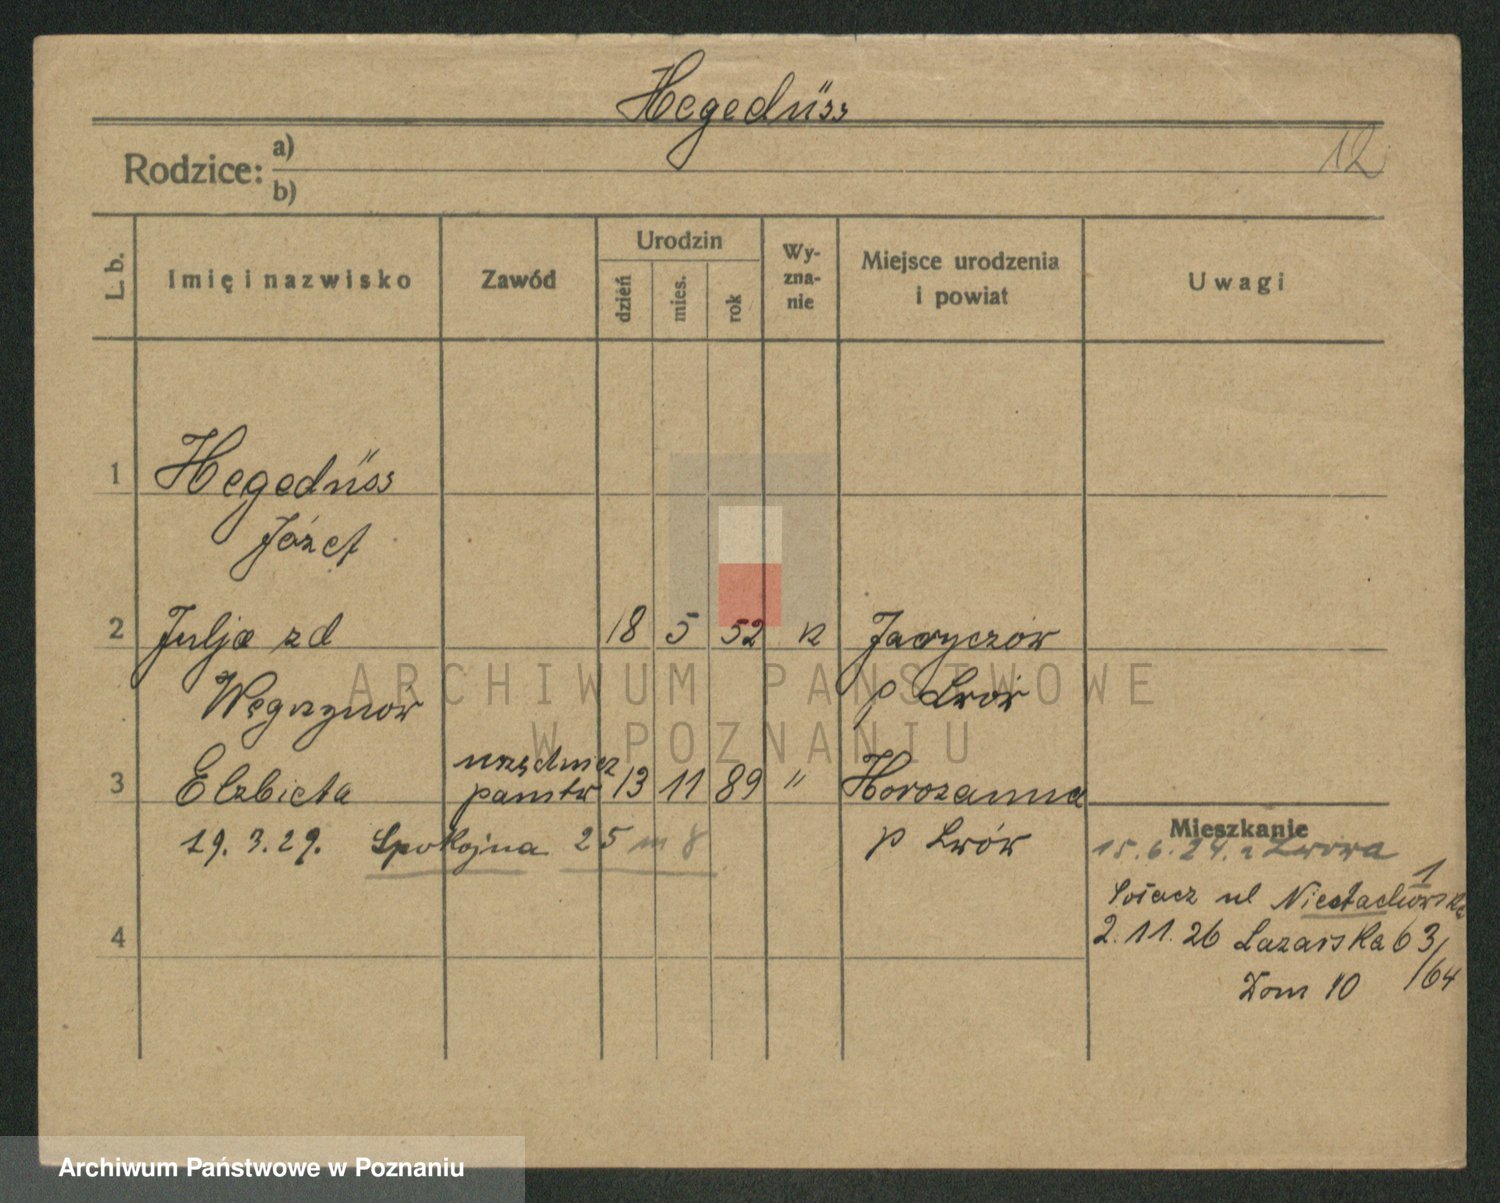 Hegedüss
12
Rodzice: a)
b)
L. b.
Imię i nazwisko
Zawód
Urodzin
dzień
mies.
rok
Wy-
zna-
nie
Miejsce urodzenia
i powiat
Uwagi
1 Hegedüss
Józef
2 Julja zd 18 5 52 k Jaryczów
p Lwów
3 Elżbieta urzędnicz 13 11 89 " Horożanna
państw
19. 3. 29. Spokojna 25 m 8 p Lwów
Mieszkanie
15. 6. 24. z Lwowa
Sołacz ul Niestachowska 1
2. 11. 26 Łazarska 63/64
Dom 10
4
ARCHIWUM PAŃSTWOWE
W POZNANIU
Archiwum Państwowe w Poznaniu